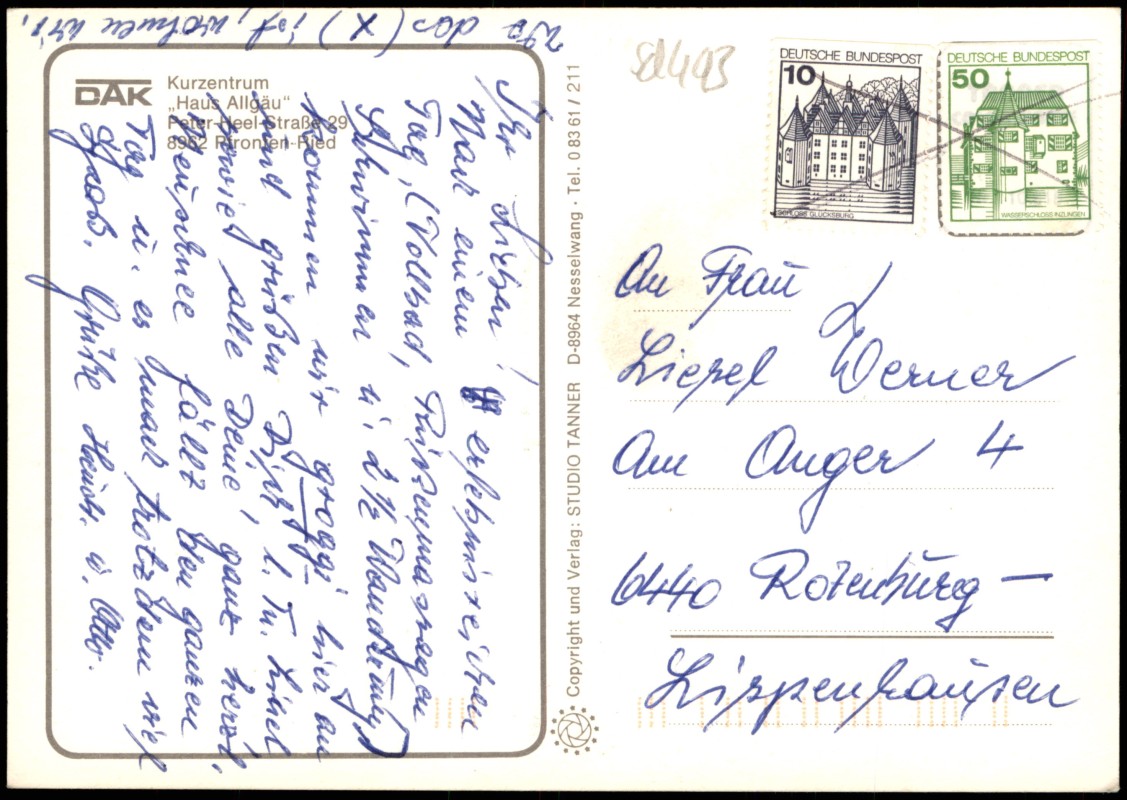 DAK
Kurzentrum
„Haus Allgäu"
Peter-Heel-Straße 29
8962 Pfronten-Ried
Wo das (x) ist, wohnen wir,
Ihr Lieben!
Nach einem erlebnisreichen
Tag, (Vollbad,
Schwimmen u. 2 1/2 Wanderung)
kommen wir groggi hier an
und grüßen Dich l.
sowie alle Deine, ganz herzl.
Neuschnee fällt den ganzen
Tag u. es macht trotzdem viel
Spaß. Grüße u. Otto.
Copyright und Verlag: STUDIO TANNER D-8964 Nesselwang · Tel. 0 83 61 / 211
DEUTSCHE BUNDESPOST
10
SCHLOSS GLÜCKSBURG
DEUTSCHE BUNDESPOST
50
WASSERSCHLOSS INZLINGEN
An Frau
Liesel Werner
Am Anger 4
6440 Rotenburg –
Lispenhausen